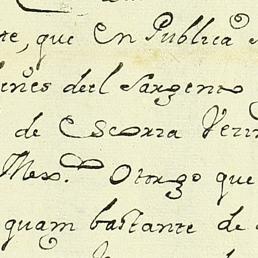 te, que en Publica
ines del Sargento
de Escorza Vezin
Mexo. Otorgo que
quam bastante de